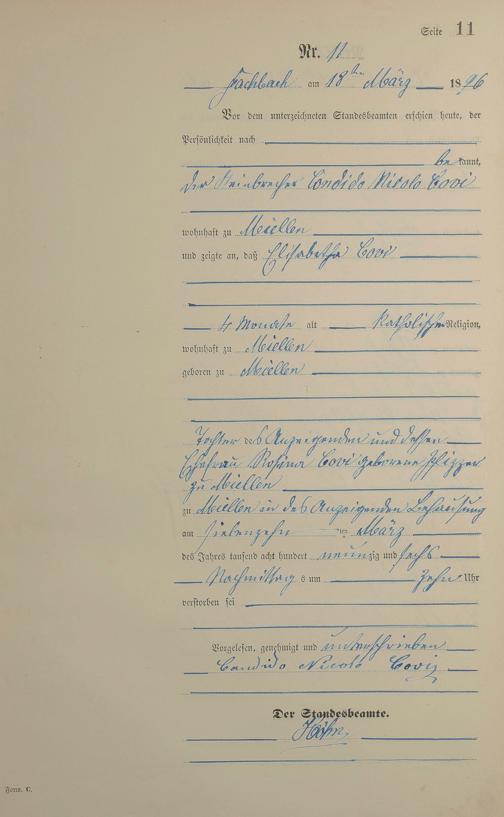 Seite 11
Nr. 11
Fachbach am 18ten März 1896
Vor dem unterzeichneten Standesbeamten erschien heute, der
Persönlichkeit nach
bekannt,
der Steinbrecher Condido Nicolo Covi
wohnhaft zu Miellen
und zeigte an, daß Elisabetha Covi
4 Monate alt katholischer Religion,
wohnhaft zu Miellen
geboren zu Miellen
Tochter des Anzeigenden und dessen
Ehefrau Rosina Covi geborene
zu Miellen
zu Miellen in des Anzeigenden Behausung
am siebenzehn ten März
des Jahres tausend acht hundert neunzig und sechs
Nachmittags um zehn Uhr
verstorben sei
Vorgelesen, genehmigt und unterschrieben
Candido Nicolo Covi
Der Standesbeamte.
Form. C.